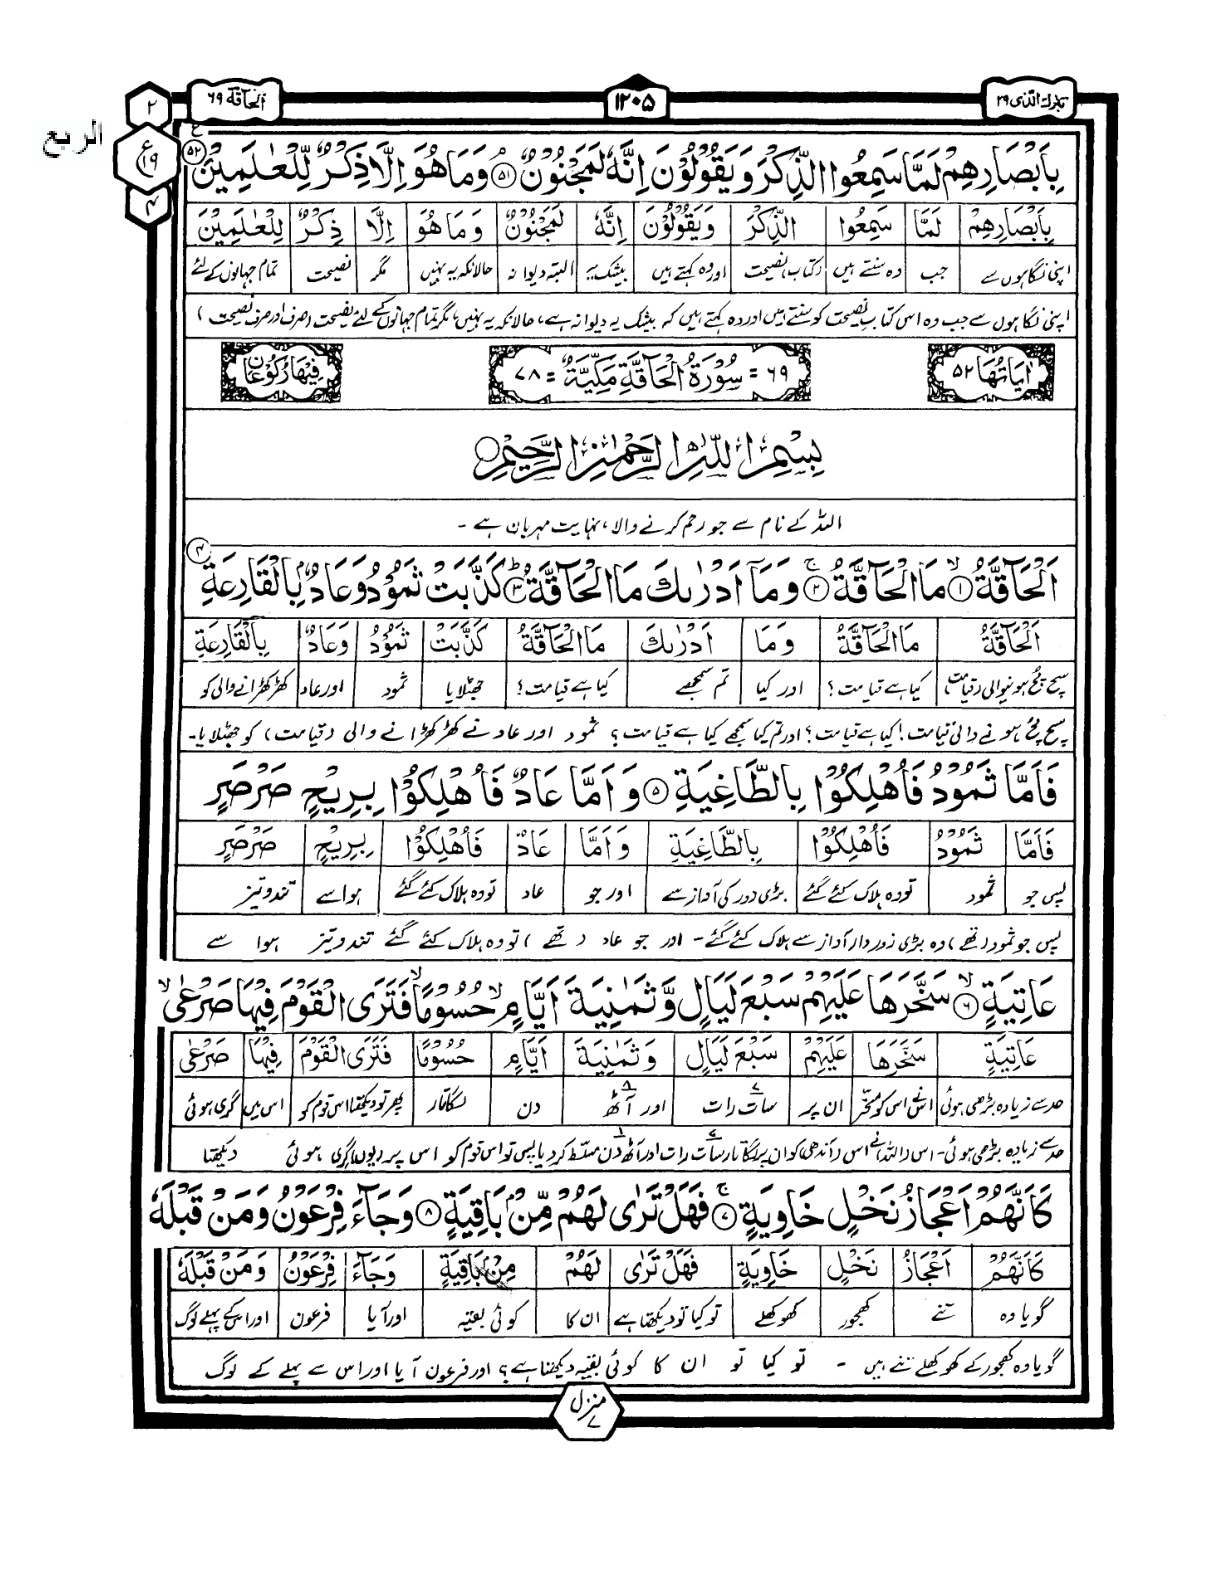 تبارك الذی ۲۹
۱۲۰۵
الحاقة ۶۹
۲
ع
۱۹
۴
الربع
بِاَبْصَارِهِمْ لَمَّا سَمِعُوا الذِّكْرَ وَيَقُوْلُوْنَ اِنَّهٗ لَمَجْنُوْنٌ ۘ ۵۱ وَمَا هُوَ اِلَّا ذِكْرٌ لِّلْعٰلَمِيْنَ ۵۲ ع
بِاَبْصَارِهِمْ لَمَّا سَمِعُوا الذِّكْرَ وَيَقُوْلُوْنَ اِنَّهٗ لَمَجْنُوْنٌ وَمَا هُوَ اِلَّا ذِكْرٌ لِلْعٰلَمِيْنَ
اپنی نگاہوں سے جب وہ سنتے ہیں (کتاب) نصیحت اور وہ کہتے ہیں بیشک یہ البتہ دیوانہ حالانکہ یہ نہیں مگر نصیحت تمام جہانوں کے لئے
اپنی نگاہوں سے جب وہ اس کتاب نصیحت کو سنتے ہیں اور وہ کہتے ہیں کہ بیشک یہ دیوانہ ہے، حالانکہ یہ نہیں، مگر تمام جہانوں کے لئے نصیحت (صرف اور صرف نصیحت)
اٰيَاتُهَا ۵۲
۶۹ = سُوْرَةُ الْحَاقَّةِ مَكِّيَّةٌ = ۷۸
فِيْهَا رُكُوْعَانِ
بِسْمِ اللّٰهِ الرَّحْمٰنِ الرَّحِيْمِ
اللہ کے نام سے جو رحم کرنے والا، نہایت مہربان ہے -
اَلْحَآقَّةُ ۙ ۱ مَا الْحَآقَّةُ ۚ ۲ وَمَآ اَدْرٰىكَ مَا الْحَآقَّةُ ؕ ۳ كَذَّبَتْ ثَمُوْدُ وَعَادٌۢ بِالْقَارِعَةِ ۴
اَلْحَآقَّةُ مَا الْحَآقَّةُ وَمَا اَدْرٰىكَ مَا الْحَآقَّةُ كَذَّبَتْ ثَمُوْدُ وَعَادٌ بِالْقَارِعَةِ
سچ مچ ہونیوالی (قیامت) کیا ہے قیامت؟ اور کیا تم سمجھے کیا ہے قیامت؟ جھٹلایا ثمود اور عاد کھڑکھڑانے والی کو
سچ مچ ہونے والی قیامت! کیا ہے قیامت؟ اور تم کیا سمجھے کیا ہے قیامت؟ ثمود اور عاد نے کھڑکھڑانے والی (قیامت) کو جھٹلایا۔
فَاَمَّا ثَمُوْدُ فَاُهْلِكُوْا بِالطَّاغِيَةِ ۵ وَاَمَّا عَادٌ فَاُهْلِكُوْا بِرِيْحٍ صَرْصَرٍ
فَاَمَّا ثَمُوْدُ فَاُهْلِكُوْا بِالطَّاغِيَةِ وَاَمَّا عَادٌ فَاُهْلِكُوْا بِرِيْحٍ صَرْصَرٍ
پس جو ثمود تو وہ ہلاک کئے گئے بڑی زور کی آواز سے اور جو عاد تو وہ ہلاک کئے گئے ہوا سے تند و تیز
پس جو ثمود (تھے) وہ بڑی زور دار آواز سے ہلاک کئے گئے - اور جو عاد (تھے) تو وہ ہلاک کئے گئے تند و تیز ہوا سے
عَاتِيَةٍ ۙ ۶ سَخَّرَهَا عَلَيْهِمْ سَبْعَ لَيَالٍ وَّثَمٰنِيَةَ اَيَّامٍ ۙ حُسُوْمًا ۙ فَتَرَى الْقَوْمَ فِيْهَا صَرْعٰى ۙ
عَاتِيَةٍ سَخَّرَهَا عَلَيْهِمْ سَبْعَ لَيَالٍ وَثَمٰنِيَةَ اَيَّامٍ حُسُوْمًا فَتَرَى الْقَوْمَ فِيْهَا صَرْعٰى
حد سے زیادہ بڑھی ہوئی اس نے اس کو مسخر ان پر سات رات اور آٹھ دن لگاتار پھر تو دیکھتا اس قوم کو اس میں گری ہوئی
حد سے زیادہ بڑھی ہوئی - اس (اللہ) نے اس (آندھی) کو ان پر لگاتار سات رات اور آٹھ دن مسلط کر دیا پس تو اس قوم کو اس پر (یوں) گری ہوئی دیکھتا
كَاَنَّهُمْ اَعْجَازُ نَخْلٍ خَاوِيَةٍ ۚ ۷ فَهَلْ تَرٰى لَهُمْ مِّنْۢ بَاقِيَةٍ ۸ وَجَآءَ فِرْعَوْنُ وَمَنْ قَبْلَهٗ
كَاَنَّهُمْ اَعْجَازُ نَخْلٍ خَاوِيَةٍ فَهَلْ تَرٰى لَهُمْ مِنْ بَاقِيَةٍ وَجَآءَ فِرْعَوْنُ وَمَنْ قَبْلَهٗ
گویا وہ تنے کھجور کھوکھلے تو کیا تو دیکھتا ہے ان کا کوئی بقیہ اور آیا فرعون اور اس کے پہلے لوگ
گویا وہ کھجور کے کھوکھلے تنے ہیں - تو کیا تو ان کا کوئی بقیہ دیکھتا ہے؟ اور فرعون آیا اور اس سے پہلے کے لوگ
منزل ۷